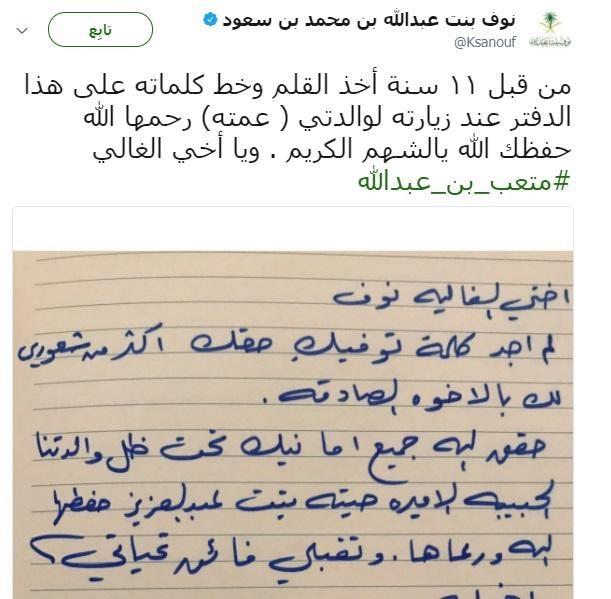 نوف بنت عبدالله بن محمد بن سعود
@Ksanouf
تابِع
من قبل ١١ سنة أخذ القلم وخط كلماته على هذا
الدفتر عند زيارته لوالدتي ( عمته) رحمها الله
حفظك الله يالشهم الكريم . ويا أخي الغالي
#متعب_بن_عبدالله
اختي الغاليه نوف
لم اجد كلمة توفيك حقك اكثر من شعوري
لك بالاخوه الصادقه .
حقق الله جميع امانيك تحت ظل والدتنا
الحبيبه الاميره صيته بنت عبدالعزيز حفظها
الله ورعاها . وتقبلي فائق تحياتي ؟